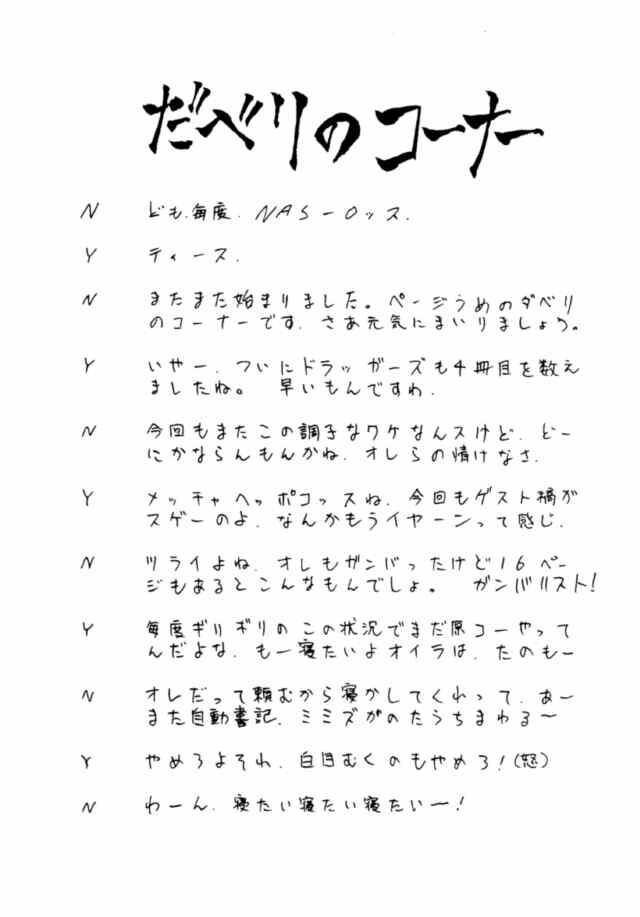 だべりのコーナー
N ども、毎度、NAS-Oッス.
Y ティース.
N またまた始まりました。ページうめのダベリ
のコーナーです、さあ元気にまいりましょう。
Y いやー、ついにドラッガーズも4冊目を数え
ましたね。 早いもんですわ.
N 今回もまたこの調子なワケなんスけど、どー
にかならんもんかね、オレらの情けなさ.
Y メッチャヘッポコッスね、今回もゲスト稿が
スゲーのよ、なんかもうイヤーンって感じ.
N ツライよね、オレもガンバったけど16ペー
ジもあるとこんなもんでしょ。 ガンバリスト!
Y 毎度ギリギリのこの状況でまだ原コーやって
んだよな、もー寝たいよオイラは、たのもー
N オレだって頼むから寝かしてくれって、あー
また自動書記、ミミズがのたうちまわる〜
Y やめろよそれ、白目むくのもやめろ!(怒)
N わーん、寝たい寝たい寝たい〜!